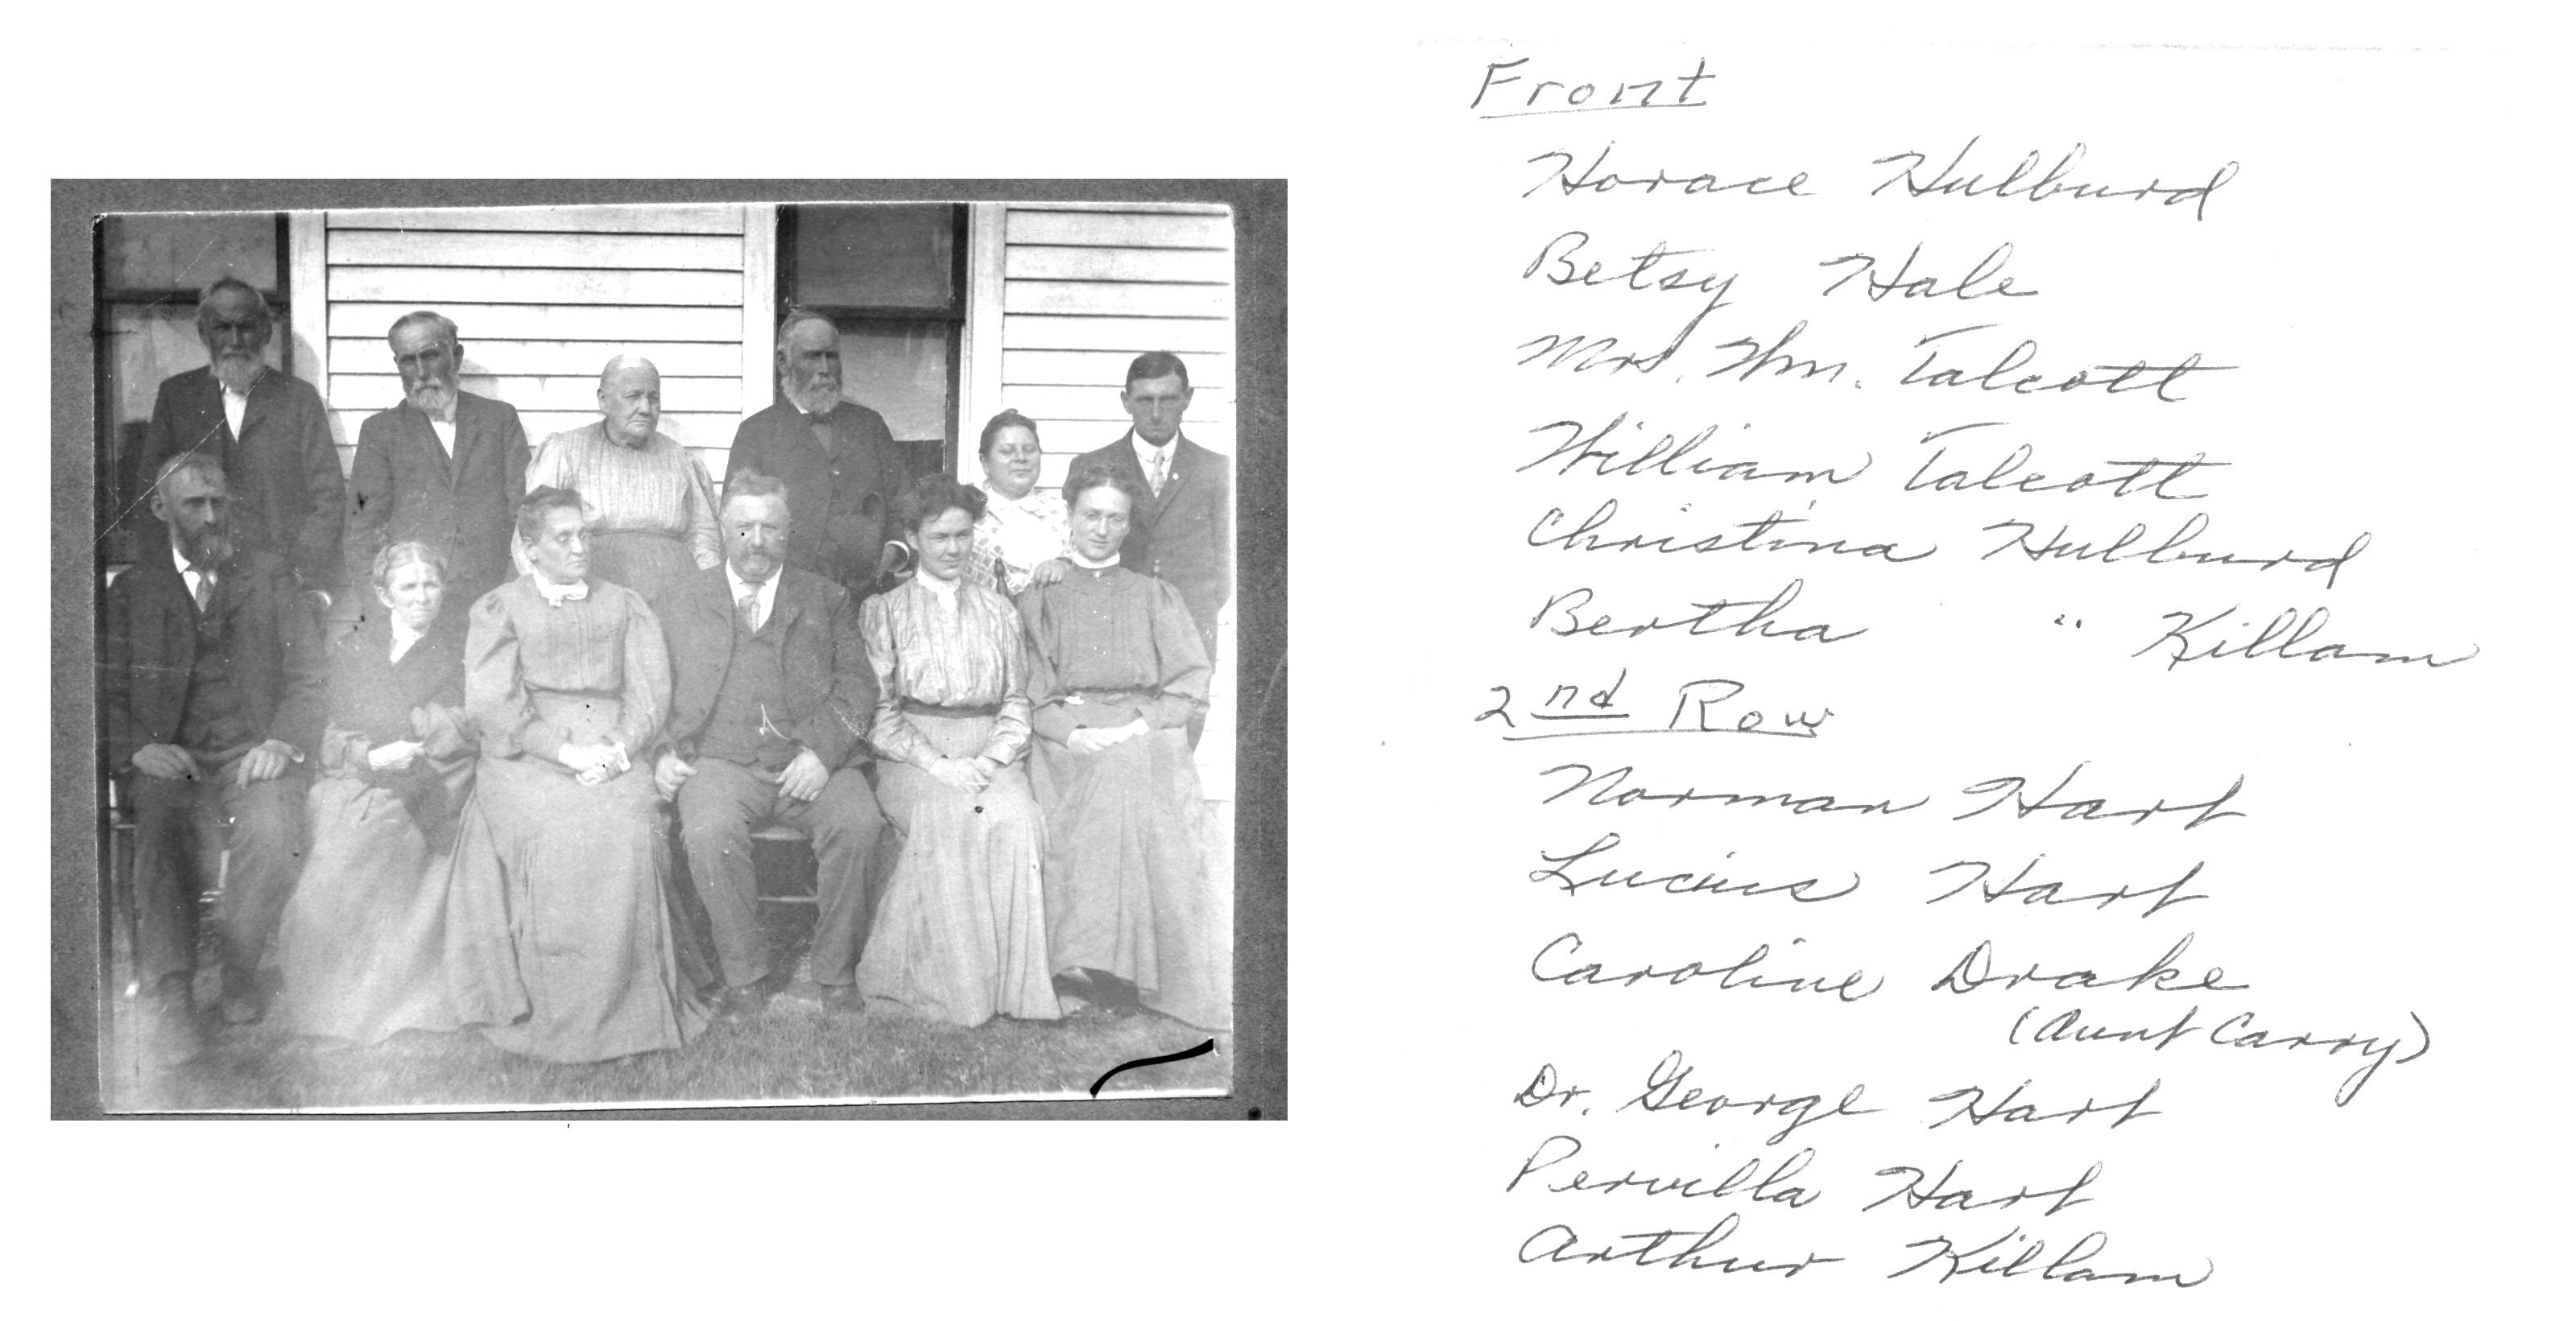 Front
Horace Hulburd
Betsy Hale
Mrs. Wm. Talcott
William Talcott
Christina Hulburd
Bertha " Killam
2nd Row
Norman Hart
Lucius Hart
Caroline Drake
(Aunt Carry)
Dr. George Hart
Pervilla Hart
Arthur Killam